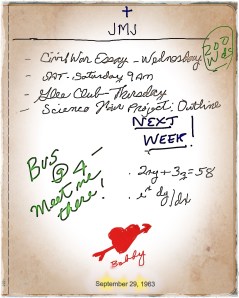 JMJ
- Civil War Essay - Wednesday
200 Wds
- SAT - Saturday 9 AM
- Glee Club - Thursday
- Science Fair Project; Outline
NEXT
WEEK!
BUS
@ 4
Meet me
there!
. 2xy + 3z = 58
. eˣ dy/dx
Bobby
September 29, 1963